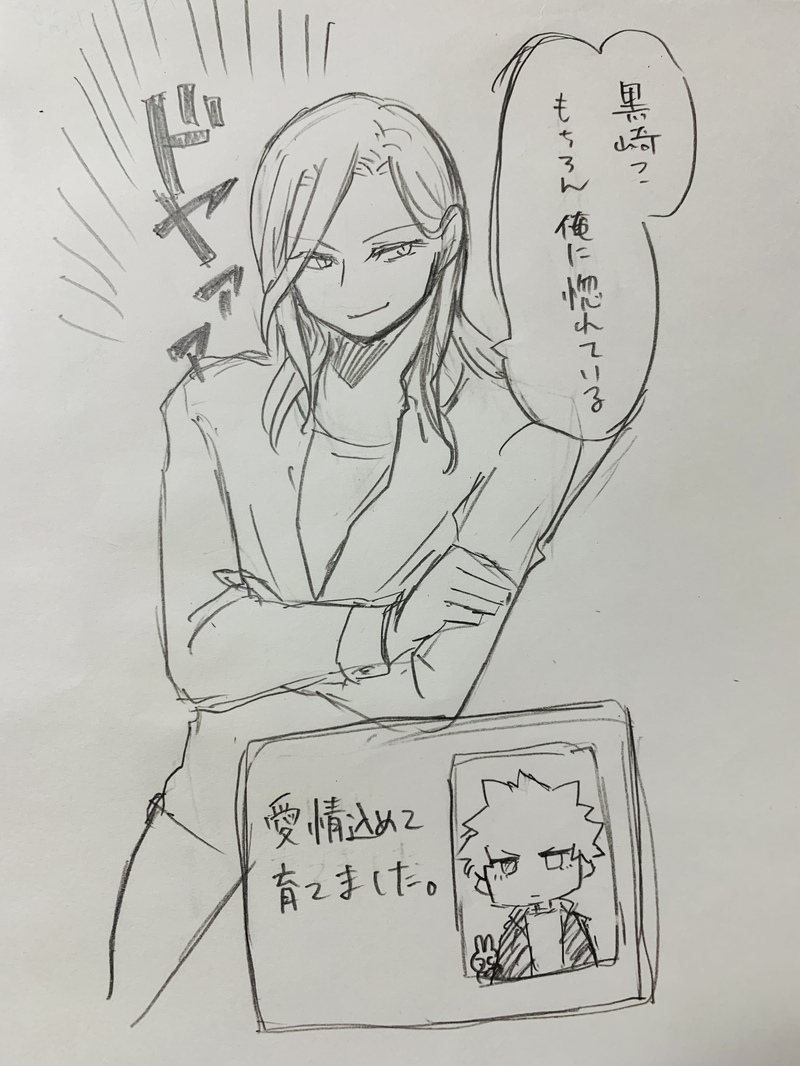 黒崎?
もちろん俺に惚れている
ドヤァァ
愛情込めて
育てました。